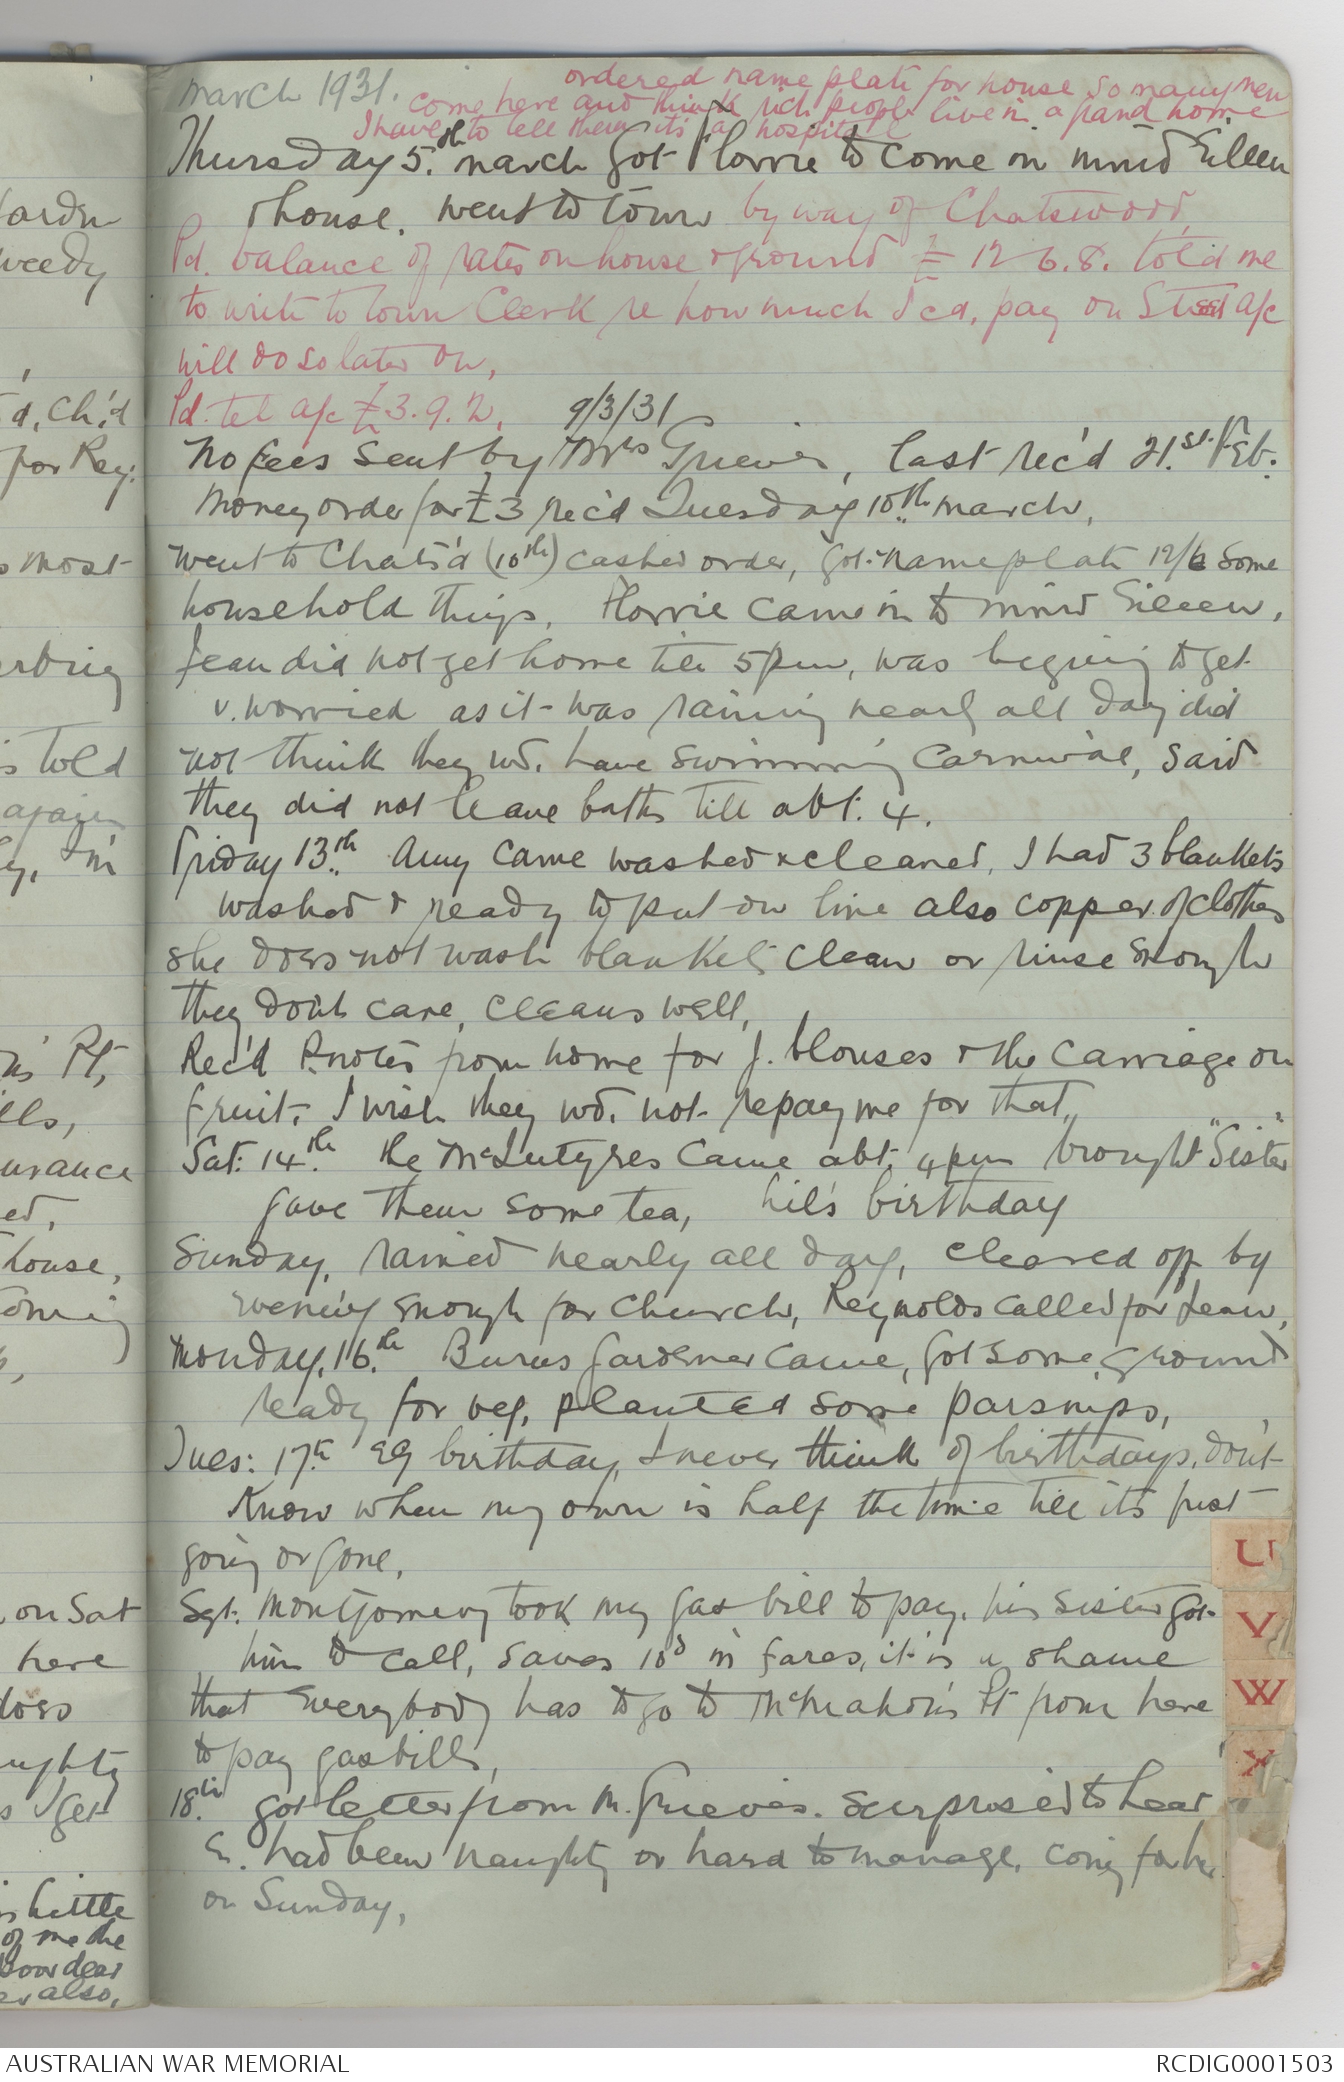 March 1931.
ordered name plate for house so many men
come here and think rich people live in a grand home
I have to tell them it's a hospital
Thursday 5.th March Got Florrie to come in mind Eileen
& house. Went to town by way of Chatswood,
Pd. balance of rates on house & ground £ 12 6.8. told me
to write to Town Clerk re how much I cd. pay on Street a/c
will do so later on,
Pd. tel a/c £3.9.2. 9/3/31
No fees sent by Mrs Grieves, last rec'd 21.st Feb.
Money order for £3 rec'd Tuesday 10th March,
Went to Chats'd (10th) cashed order, got name plate 12/6 some
household things. Florrie came in to mind Eileen,
Jean did not get home till 5pm, was begining to get
v. worried as it was raining nearly all day did
not think they wd. have swimming Carnival, said
they did not leave baths till abt. 4.
Friday 13th. Amy came washed & cleaned, I had 3 blankets
washed & ready to put on line also copper of clothes
she does not wash blankets clean or rinse enough
they don't care, cleans well,
Rec'd P.notes from home for J. blouses & the carriage on
fruit, I wish they wd. not repay me for that,
Sat: 14.th the McIntyres came abt. 4pm brought "Sister"
gave them some tea, hil's birthday
Sunday, rained nearly all day, cleared off by
evening enough for Church, Reynolds called for Jean,
Monday, 16.th Burns gardener came, got some ground
ready for veg, planted some parsnips,
Tues: 17th EG birthday, I never think of birthdays, don't
know when my own is half the time till it's just
going or gone,
Sgt. Montgomery took my gas bill to pay, his sister got
him to call, saves 10d in fares, it is a shame
that everybody has to go to McMahon's Pt from here
to pay gas bills,
18.th got letter from M. Grieves. Surprised to hear
E. had been naughty or hard to manage, comg for her
on Sunday,
U
V
W
X
Gardn
weedy
'd, Ch'd
for Rey:
most
told
again
ly, I'm
n's Pt,
ills,
urance
ed,
house,
on Sat
here
does
ughty
s I get
little
of me the
poor dear
er also,
AUSTRALIAN WAR MEMORIAL
RCDIG0001503